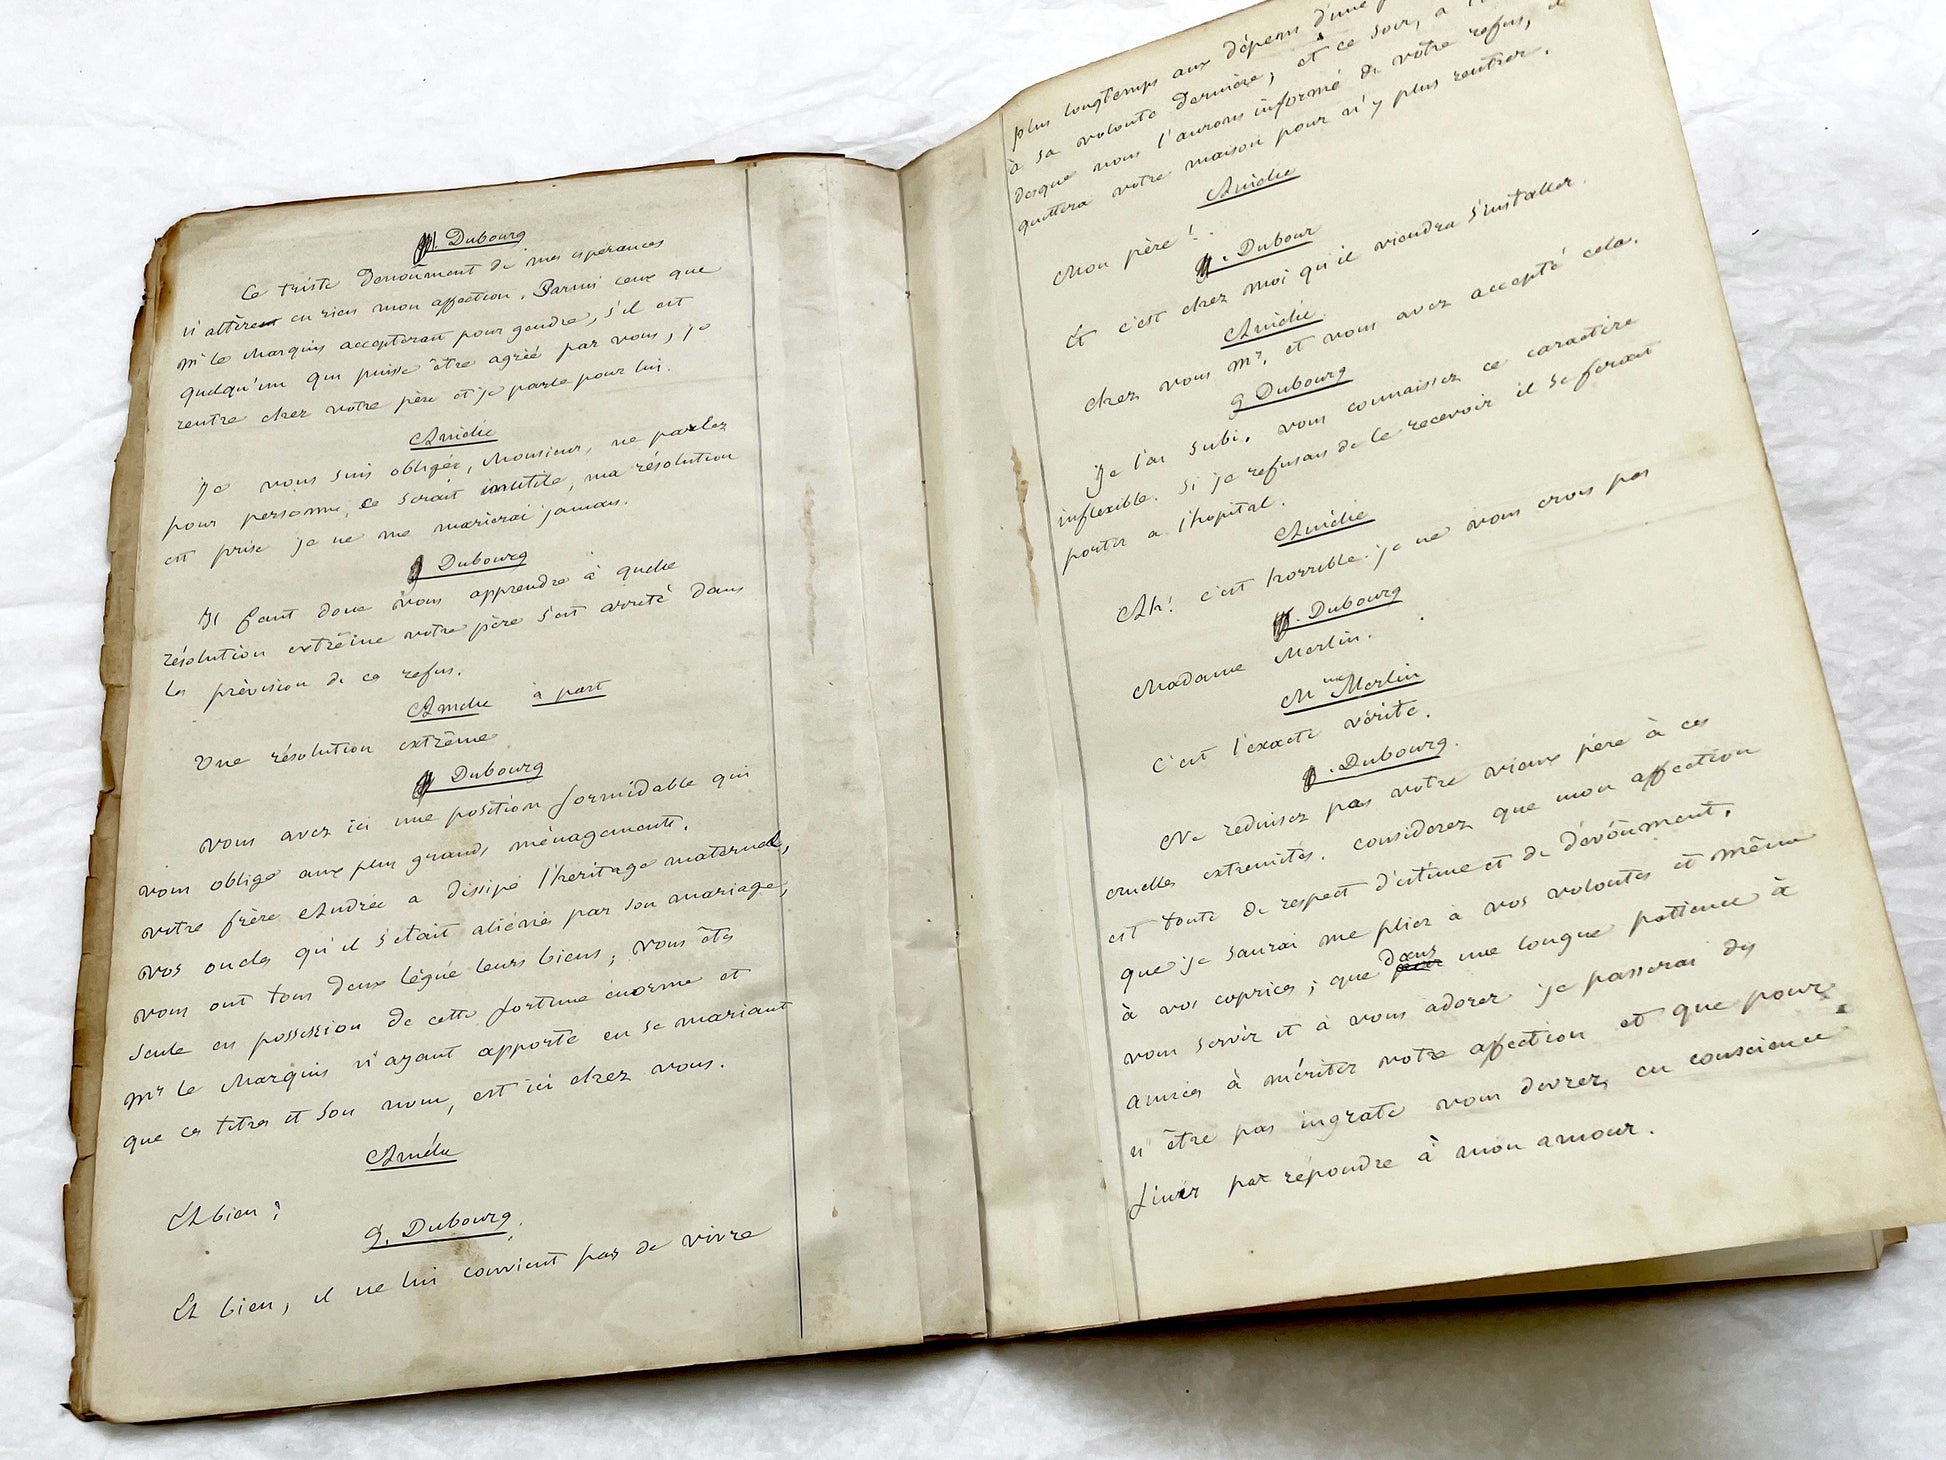 M. Dubourg
Ce triste dénoûment de mes espérances
n'altèrent en rien mon affection. Parmi ceux que
Mr le Marquis accepterait pour gendre, s'il est
quelqu'un qui puisse être agréé par vous, je
rentre chez votre père et je parle pour lui.
Amélie
Je vous suis obligée, Monsieur, ne parlez
pour personne, ce serait inutile, ma résolution
est prise je ne me marierai jamais.
Dubourg
Il faut donc vous apprendre à quelle
résolution extrême votre père s'est arrêté dans
la prévision de ce refus.
Amélie à part
Une résolution extrême
Dubourg
Vous avez ici une position formidable qui
vous oblige aux plus grands ménagements.
votre frère Andrée a dissipé l'héritage maternel,
vos oncles qu'il s'était aliénés par son mariage,
vous ont tous deux légué leurs biens; vous êtes
seule en possession de cette fortune énorme et
Mr le Marquis n'ayant apporté en se mariant
que ces titres et son nom, est ici chez vous.
Amélie
Eh bien?
Dubourg.
Eh bien, il ne lui convient pas de vivre
plus longtemps aux dépens d'une
à sa volonté dernière; et ce soir, a
desque nous l'aurons informé de votre refus, il
quittera votre maison pour n'y plus rentrer.
Amélie
Mon père!.
Dubour
Et c'est chez moi qu'il viendra s'installer.
Amélie.
Chez vous Mr. et vous avez accepté cela.
Dubourg
Je l'ai subi. vous connaissez ce caractère
inflexible. Si je refusais de le recevoir il se ferait
porter a l'hopital.
Amélie
Ah! c'est horrible. je ne vous crois pas
M. Dubourg
Madame Merlin.
Mme Merlin
C'est l'exacte vérité.
Dubourg.
Ne réduisez pas votre vieux père à ces
cruelles extremités. considerez que mon affection
est toute de respect d'estime et de dévoûment,
que je saurai me plier à vos volontés et même
à vos caprices; que dans une longue patience à
vous servir et à vous adorer je passerai des
années à mériter votre affection et que pour
n'être pas ingrate vous devrez en conscience
finir par répondre à mon amour.